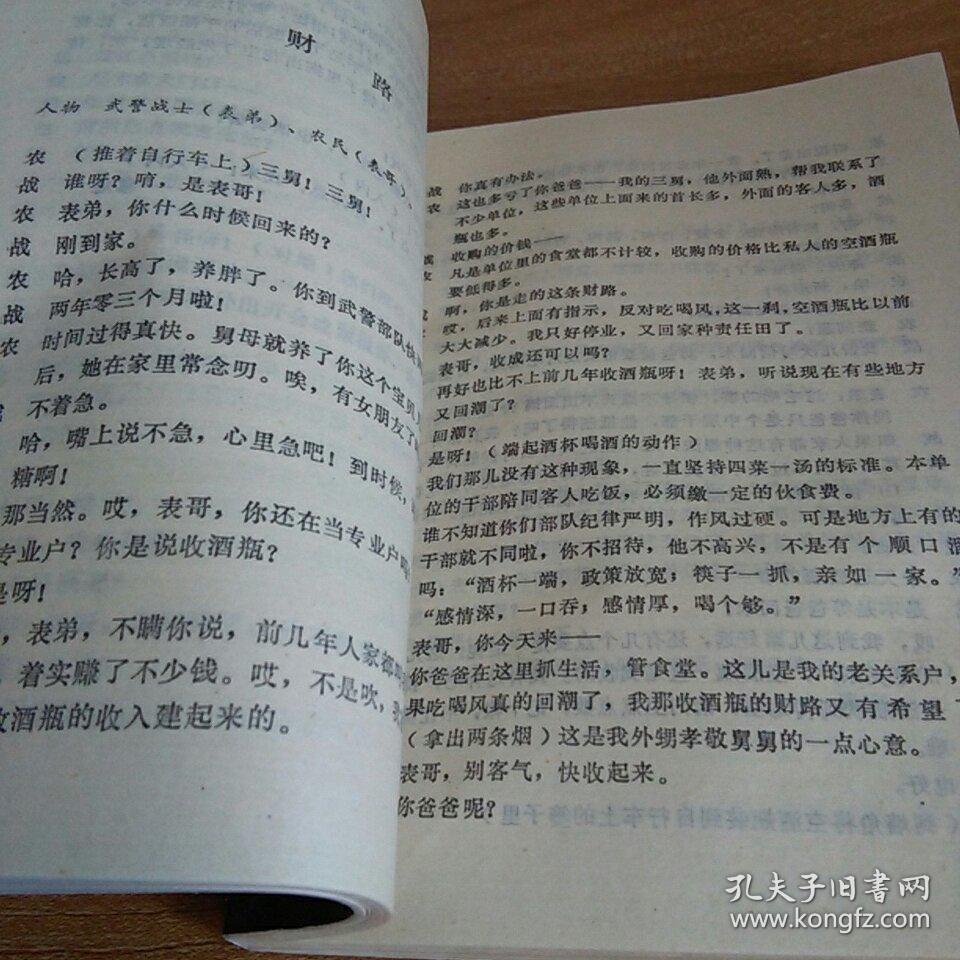 财路
人物 武警战士（表弟）、农民（表哥）。
农 （推着自行车上）三舅！三舅！
战 谁呀？唷，是表哥！
农 表弟，你什么时候回来的？
战 刚到家。
农 哈，长高了，养胖了。你到武警部队
战 两年零三个月啦！
农 时间过得真快。舅母就养了你这个宝贝
后，她在家里常念叨。唉，有女朋友了
不着急。
哈，嘴上说不急，心里急吧！到时候，
糖啊！
那当然。哎，表哥，你还在当专业户
专业户？你是说收酒瓶？
是呀！
，表弟，不瞒你说，前几年人家都
，着实赚了不少钱。哎，不是吹，
收酒瓶的收入建起来的。
战 你真有办法。
农 这也多亏了你爸爸——我的三舅，他外面熟，帮我联系了
不少单位，这些单位上面来的首长多，外面的客人多，酒
瓶也多。
战 收购的价钱——
农 凡是单位里的食堂都不计较，收购的价格比私人的空酒瓶
要低得多。
啊，你是走的这条财路。
哎，后来上面有指示，反对吃喝风，这一刹，空酒瓶比以前
大大减少。我只好停业，又回家种责任田了。
表哥，收成还可以吗？
再好也比不上前几年收酒瓶呀！表弟，听说现在有些地方
又回潮了？
回潮？
是呀！（端起酒杯喝酒的动作）
我们那儿没有这种现象，一直坚持四菜一汤的标准。本单
位的干部陪同客人吃饭，必须缴一定的伙食费。
谁不知道你们部队纪律严明，作风过硬。可是地方上有的
干部就不同啦，你不招待，他不高兴，不是有个顺口
吗：“酒杯一端，政策放宽；筷子一抓，亲如一家。”
“感情深，一口吞；感情厚，喝个够。”
表哥，你今天来——
你爸爸在这里抓生活，管食堂。这儿是我的老关系户，
果吃喝风真的回潮了，我那收酒瓶的财路又有希望
（拿出两条烟）这是我外甥孝敬舅舅的一点心意。
表哥，别客气，快收起来。
你爸爸呢？
孔夫子旧书网
www.kongfz.com